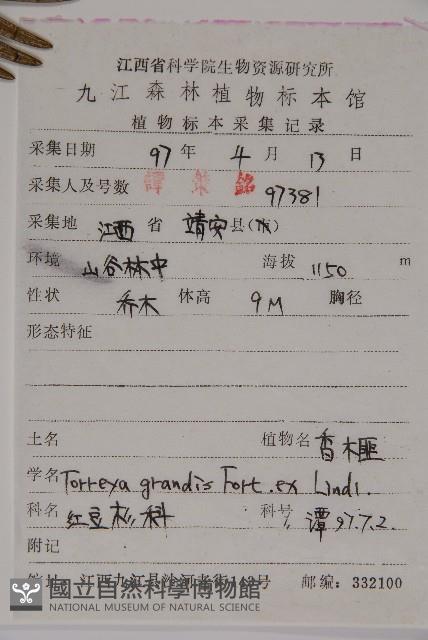 江西省科学院生物资源研究所
九江森林植物标本馆
植物标本采集记录
采集日期 97 年 4 月 13 日
采集人及号数 譚策銘 97381
采集地 江西 省 靖安 县(市)
环境 山谷林中 海拔 1150 m
性状 乔木 体高 9M 胸径
形态特征
土名 植物名 香榧
学名 Torreya grandis Fort. ex Lindl.
科名 红豆杉科 科号 譚 97.7.2.
附记
馆址 江西九江县沙河老街 号 邮编: 332100
國立自然科學博物館
NATIONAL MUSEUM OF NATURAL SCIENCE